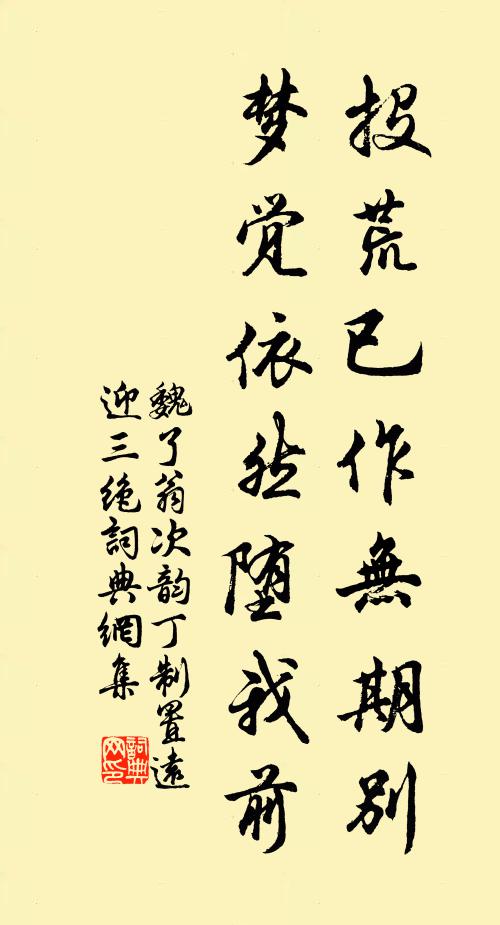 投荒已作無期別
梦觉依然堕我前
魏了翁次韵丁制置遠
迎三绝詞典網集
詞典
网印